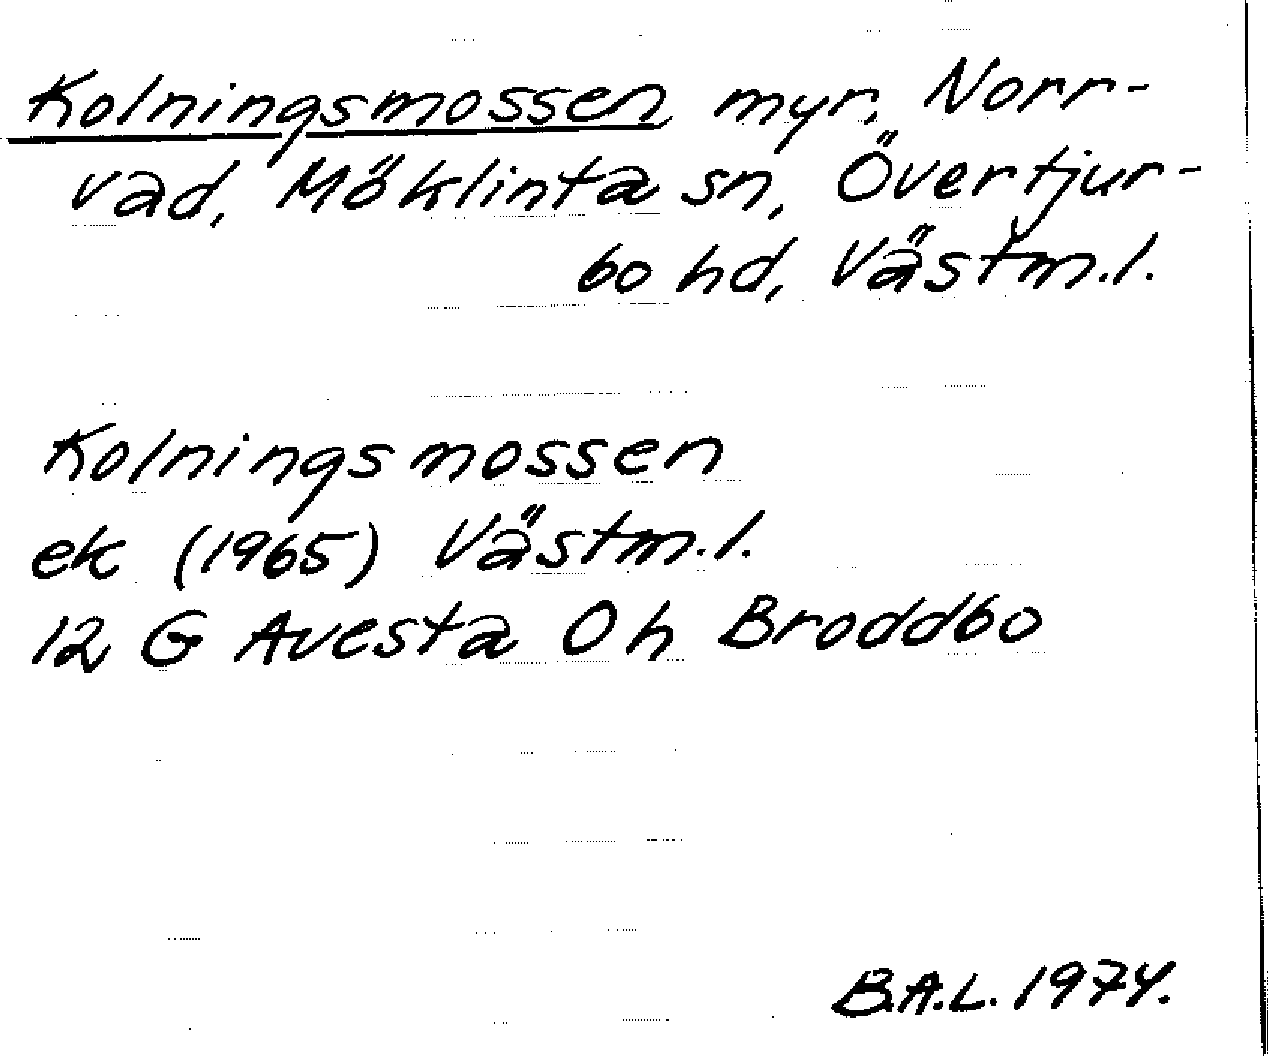 Kolningsmossen myr, Norr-
vad, Möklinta sn, Övertjur-
bo hd, Västm.l.
Kolningsmossen
ek (1965) Västm.l.
12 G Avesta 0h Broddbo
B.A.L. 1974.